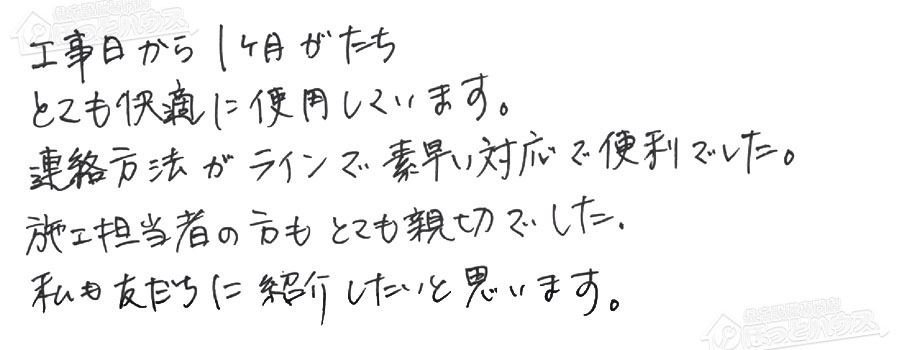 工事日から1ヶ月がたち
とても快適に使用しています。
連絡方法がラインで素早い対応で便利でした。
施工担当者の方もとても親切でした.
私も友だちに紹介したいと思います。
ほっとハウス